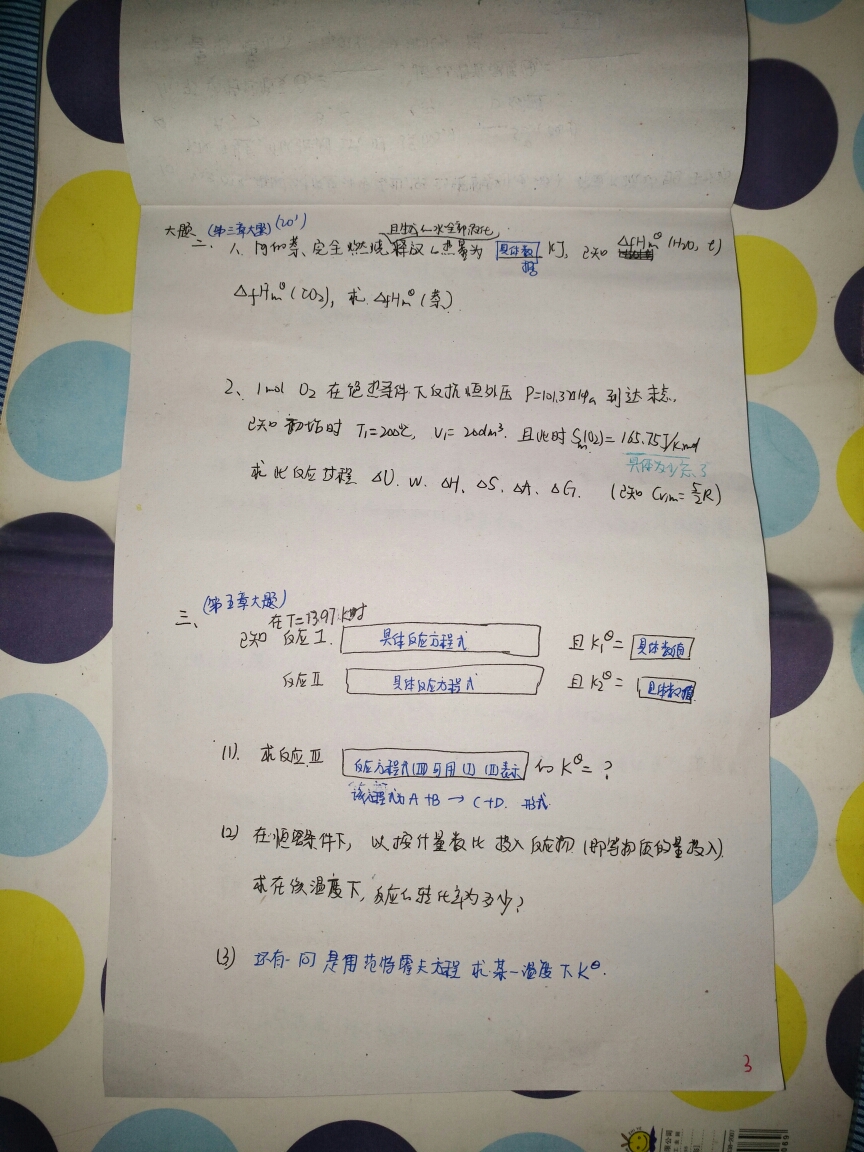 大题 (第三章大题) (20')
且生成的水全部液化
二、1、1g的萘、完全燃烧释放的热量为 具体数据 KJ, 已知 ΔfHm^θ(H2O, l)
ΔfHm^θ(CO2), 求 ΔfHm^θ(萘)
2、1mol O2 在绝热条件下反抗恒外压 P= 到达末态.
已知初始时 T1=200℃, V1=20dm³. 且此时 Sm(O2)=165.75J/K·mol
具体为
求此反应过程 ΔU. W. ΔH、ΔS、ΔA、ΔG. (已知 Cv,m=5/2R)
(第五章大题)
三、
在T=1397K时
已知 反应I. 具体反应方程式 且 K1^θ= 具体数值
反应II 具体反应方程式 且 K2^θ= 具体数值
(1). 求反应III 反应方程式(III)可用(I) (II)表示 的 K^θ= ?
该方程式为 A+B → C+D. 形式
(2) 在恒容条件下, 以按计量数比投入反应物 (即等物质的量投入).
求在该温度下, 反应的转化率为多少?
(3) 还有一问是用范特霍夫方程求某一温度下K^θ.
3